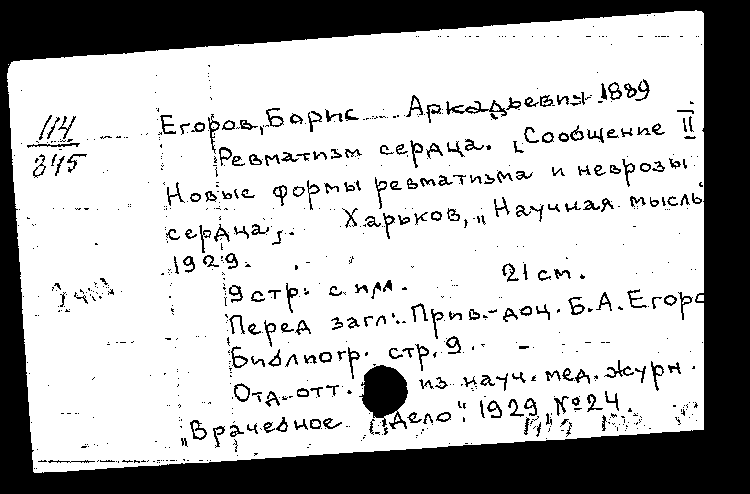 114
845
Егоров, Борис Аркадьевич 1889
Ревматизм сердца. [Сообщение II.
Новые формы ревматизма и неврозы
сердца]. Харьков, „Научная мысль"
1929.
9 стр. с илл. 21 см.
Перед загл.: Прив.-доц. Б. А. Егоро
Библиогр. стр. 9. –
Отд. отт. из науч. мед. журн.
„Врачебное дело". 1929 № 24.